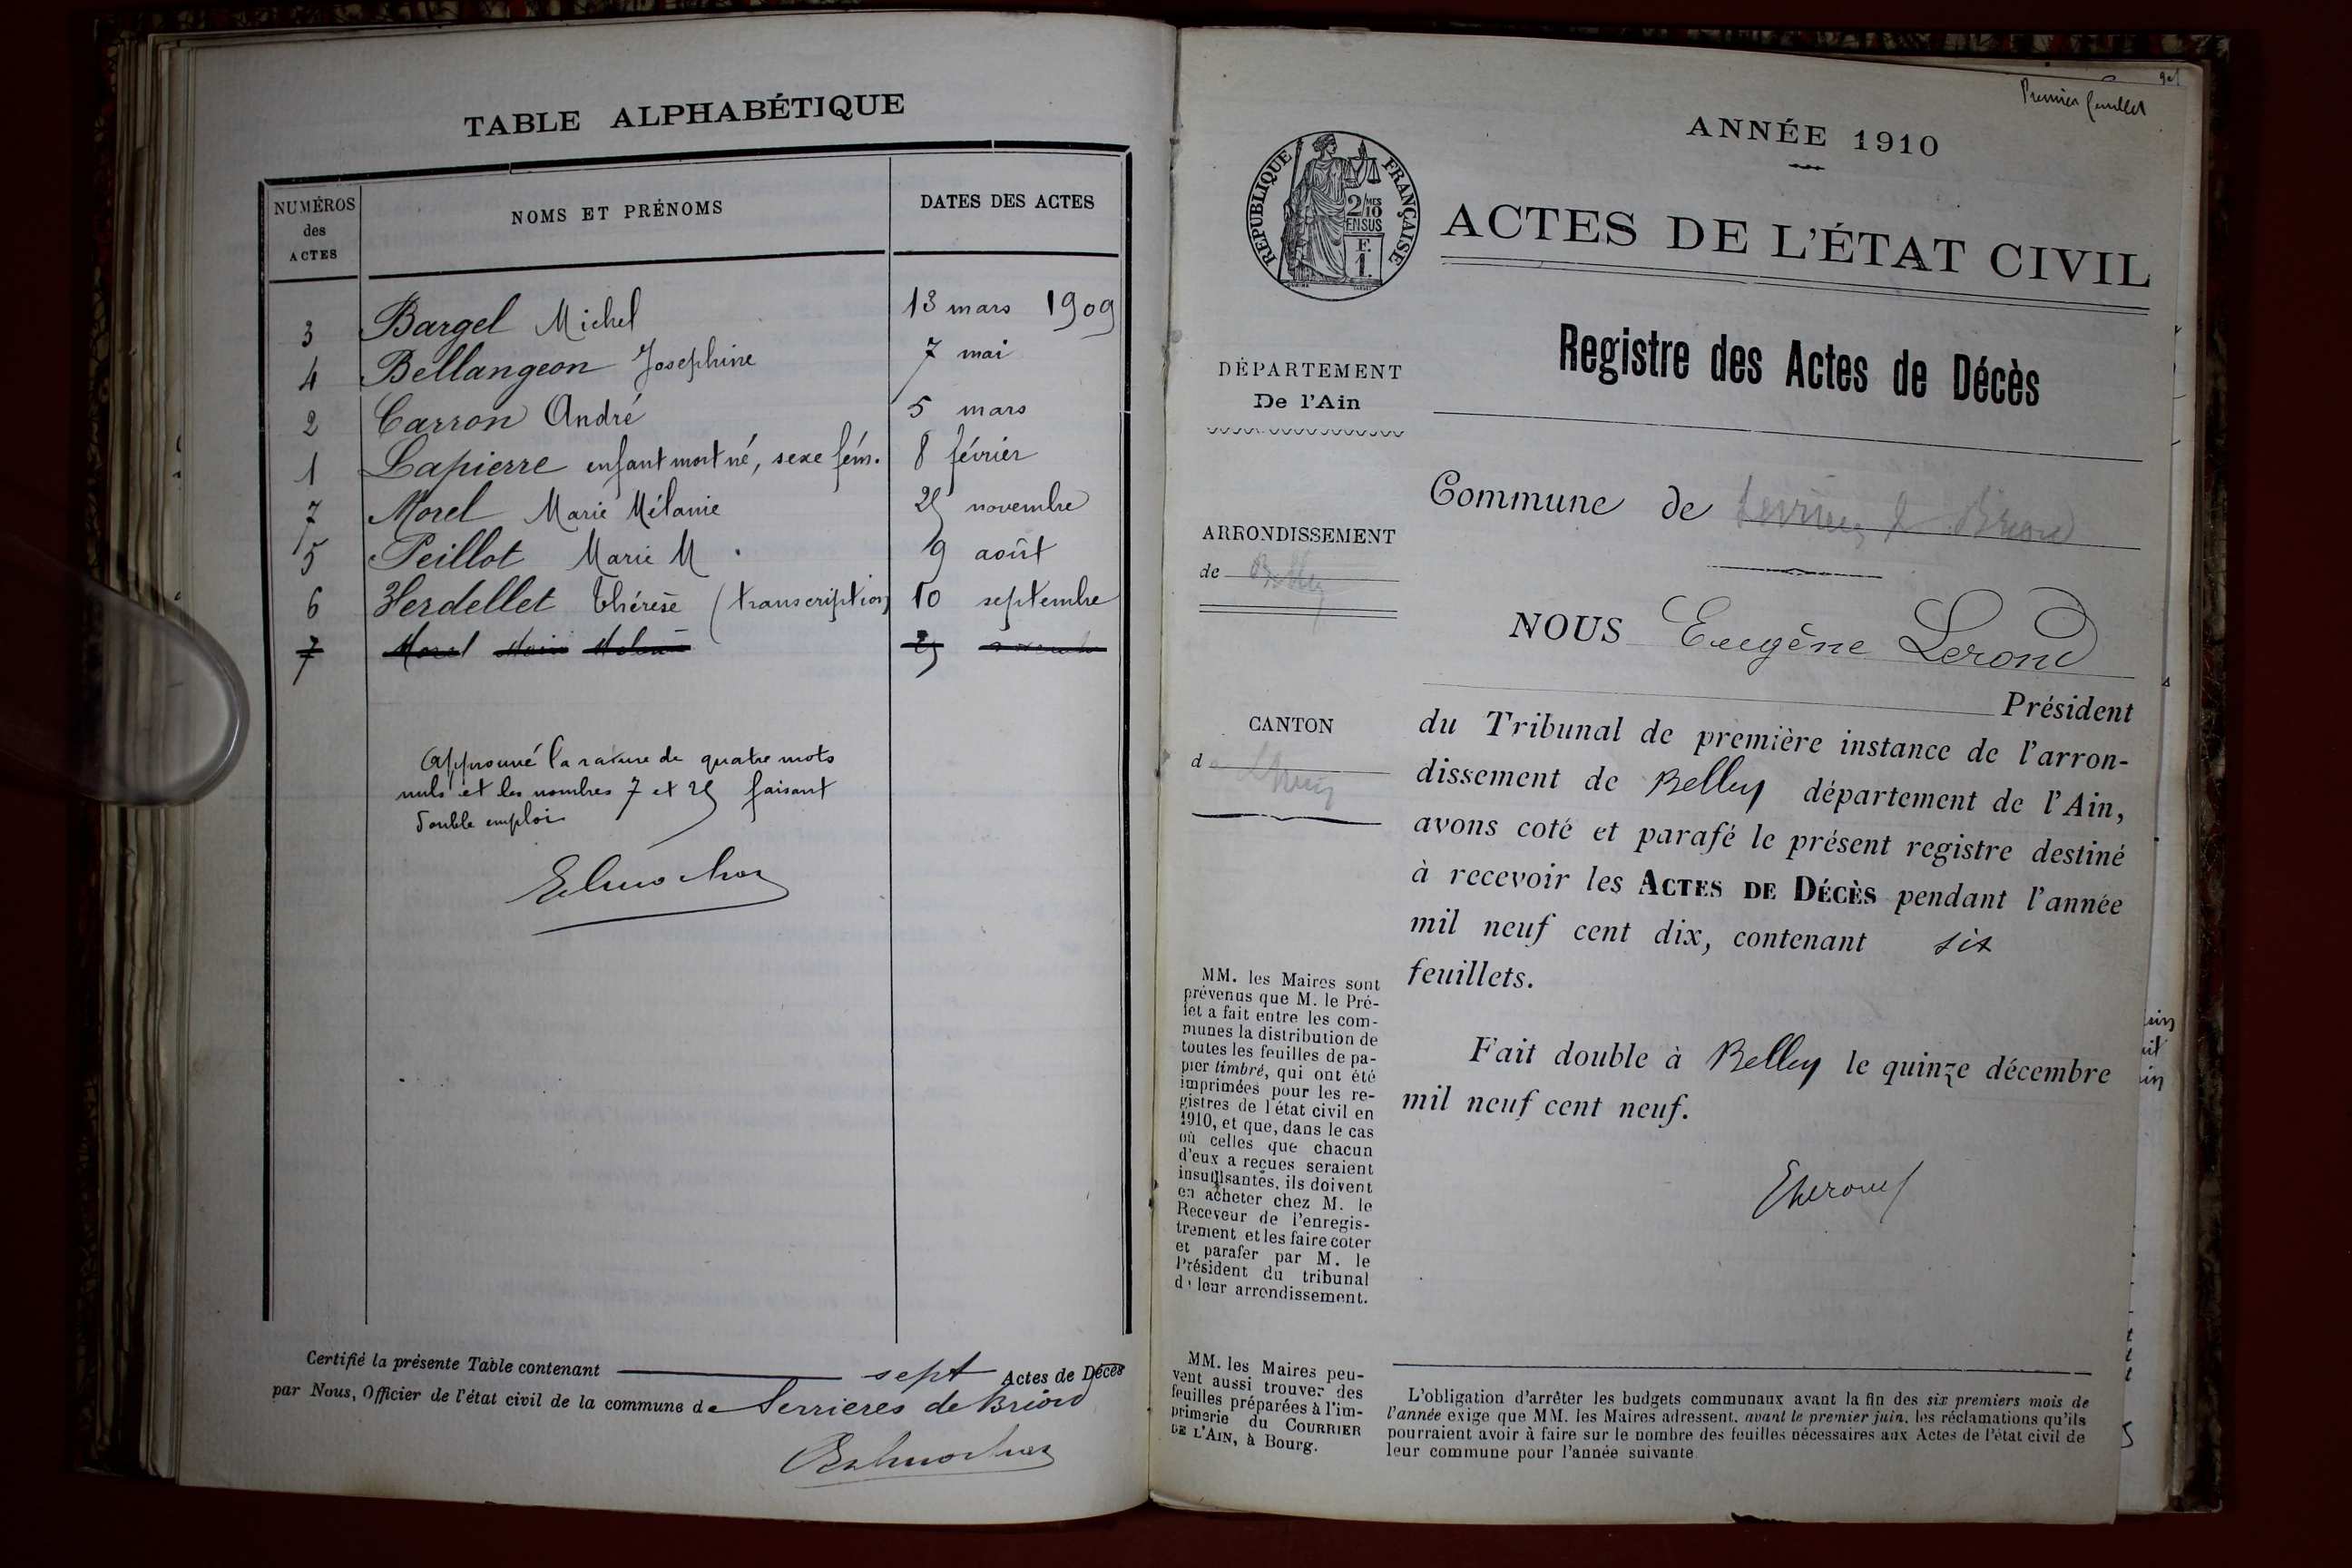 TABLE ALPHABÉTIQUE
NUMÉROS des ACTES
NOMS ET PRÉNOMS
DATES DES ACTES
3 Bargel Michel 13 mars 1909
4 Bellangeon Josephine 7 mai
2 Carron André 5 mars
1 Lapierre enfant mort né, sexe fém. 8 février
7 Morel Marie Mélanie 25 novembre
5 Peillot Marie M 9 août
6 Verdellet Thérèse (transcription) 10 septembre
7 Morel
Approuvé la rature de quatre mots
nuls et les nombres 7 et 25 faisant
double emploi
Certifié la présente Table contenant sept Actes de Décès
par Nous, Officier de l'état civil de la commune de Serrieres de Briord
Premier feuillet
ANNÉE 1910
RÉPUBLIQUE FRANÇAISE
2/10 MES
EN SUS
F.
1.
ACTES DE L'ÉTAT CIVIL
Registre des Actes de Décès
DÉPARTEMENT
De l'Ain
ARRONDISSEMENT
de Belley
CANTON
d
MM. les Maires sont
prévenus que M. le Pré-
fet a fait entre les com-
munes la distribution de
toutes les feuilles de pa-
pier timbré, qui ont été
imprimées pour les re-
gistres de l'état civil en
1910, et que, dans le cas
où celles que chacun
d'eux a reçues seraient
insuffisantes, ils doivent
en acheter chez M. le
Receveur de l'enregis-
trement et les faire coter
et parafer par M. le
Président du tribunal
de leur arrondissement.
MM. les Maires peu-
vent aussi trouver des
feuilles préparées à l'im-
primerie du COURRIER
DE L'AIN, à Bourg.
Commune de Serrières de Briord
NOUS Eugène Lerond
Président
du Tribunal de première instance de l'arron-
dissement de Belley département de l'Ain,
avons coté et parafé le présent registre destiné
à recevoir les ACTES DE DÉCÈS pendant l'année
mil neuf cent dix, contenant six
feuillets.
Fait double à Belley le quinze décembre
mil neuf cent neuf.
ELerond
L'obligation d'arrêter les budgets communaux avant la fin des six premiers mois de
l'année exige que MM. les Maires adressent, avant le premier juin, les réclamations qu'ils
pourraient avoir à faire sur le nombre des feuilles nécessaires aux Actes de l'état civil de
leur commune pour l'année suivante.